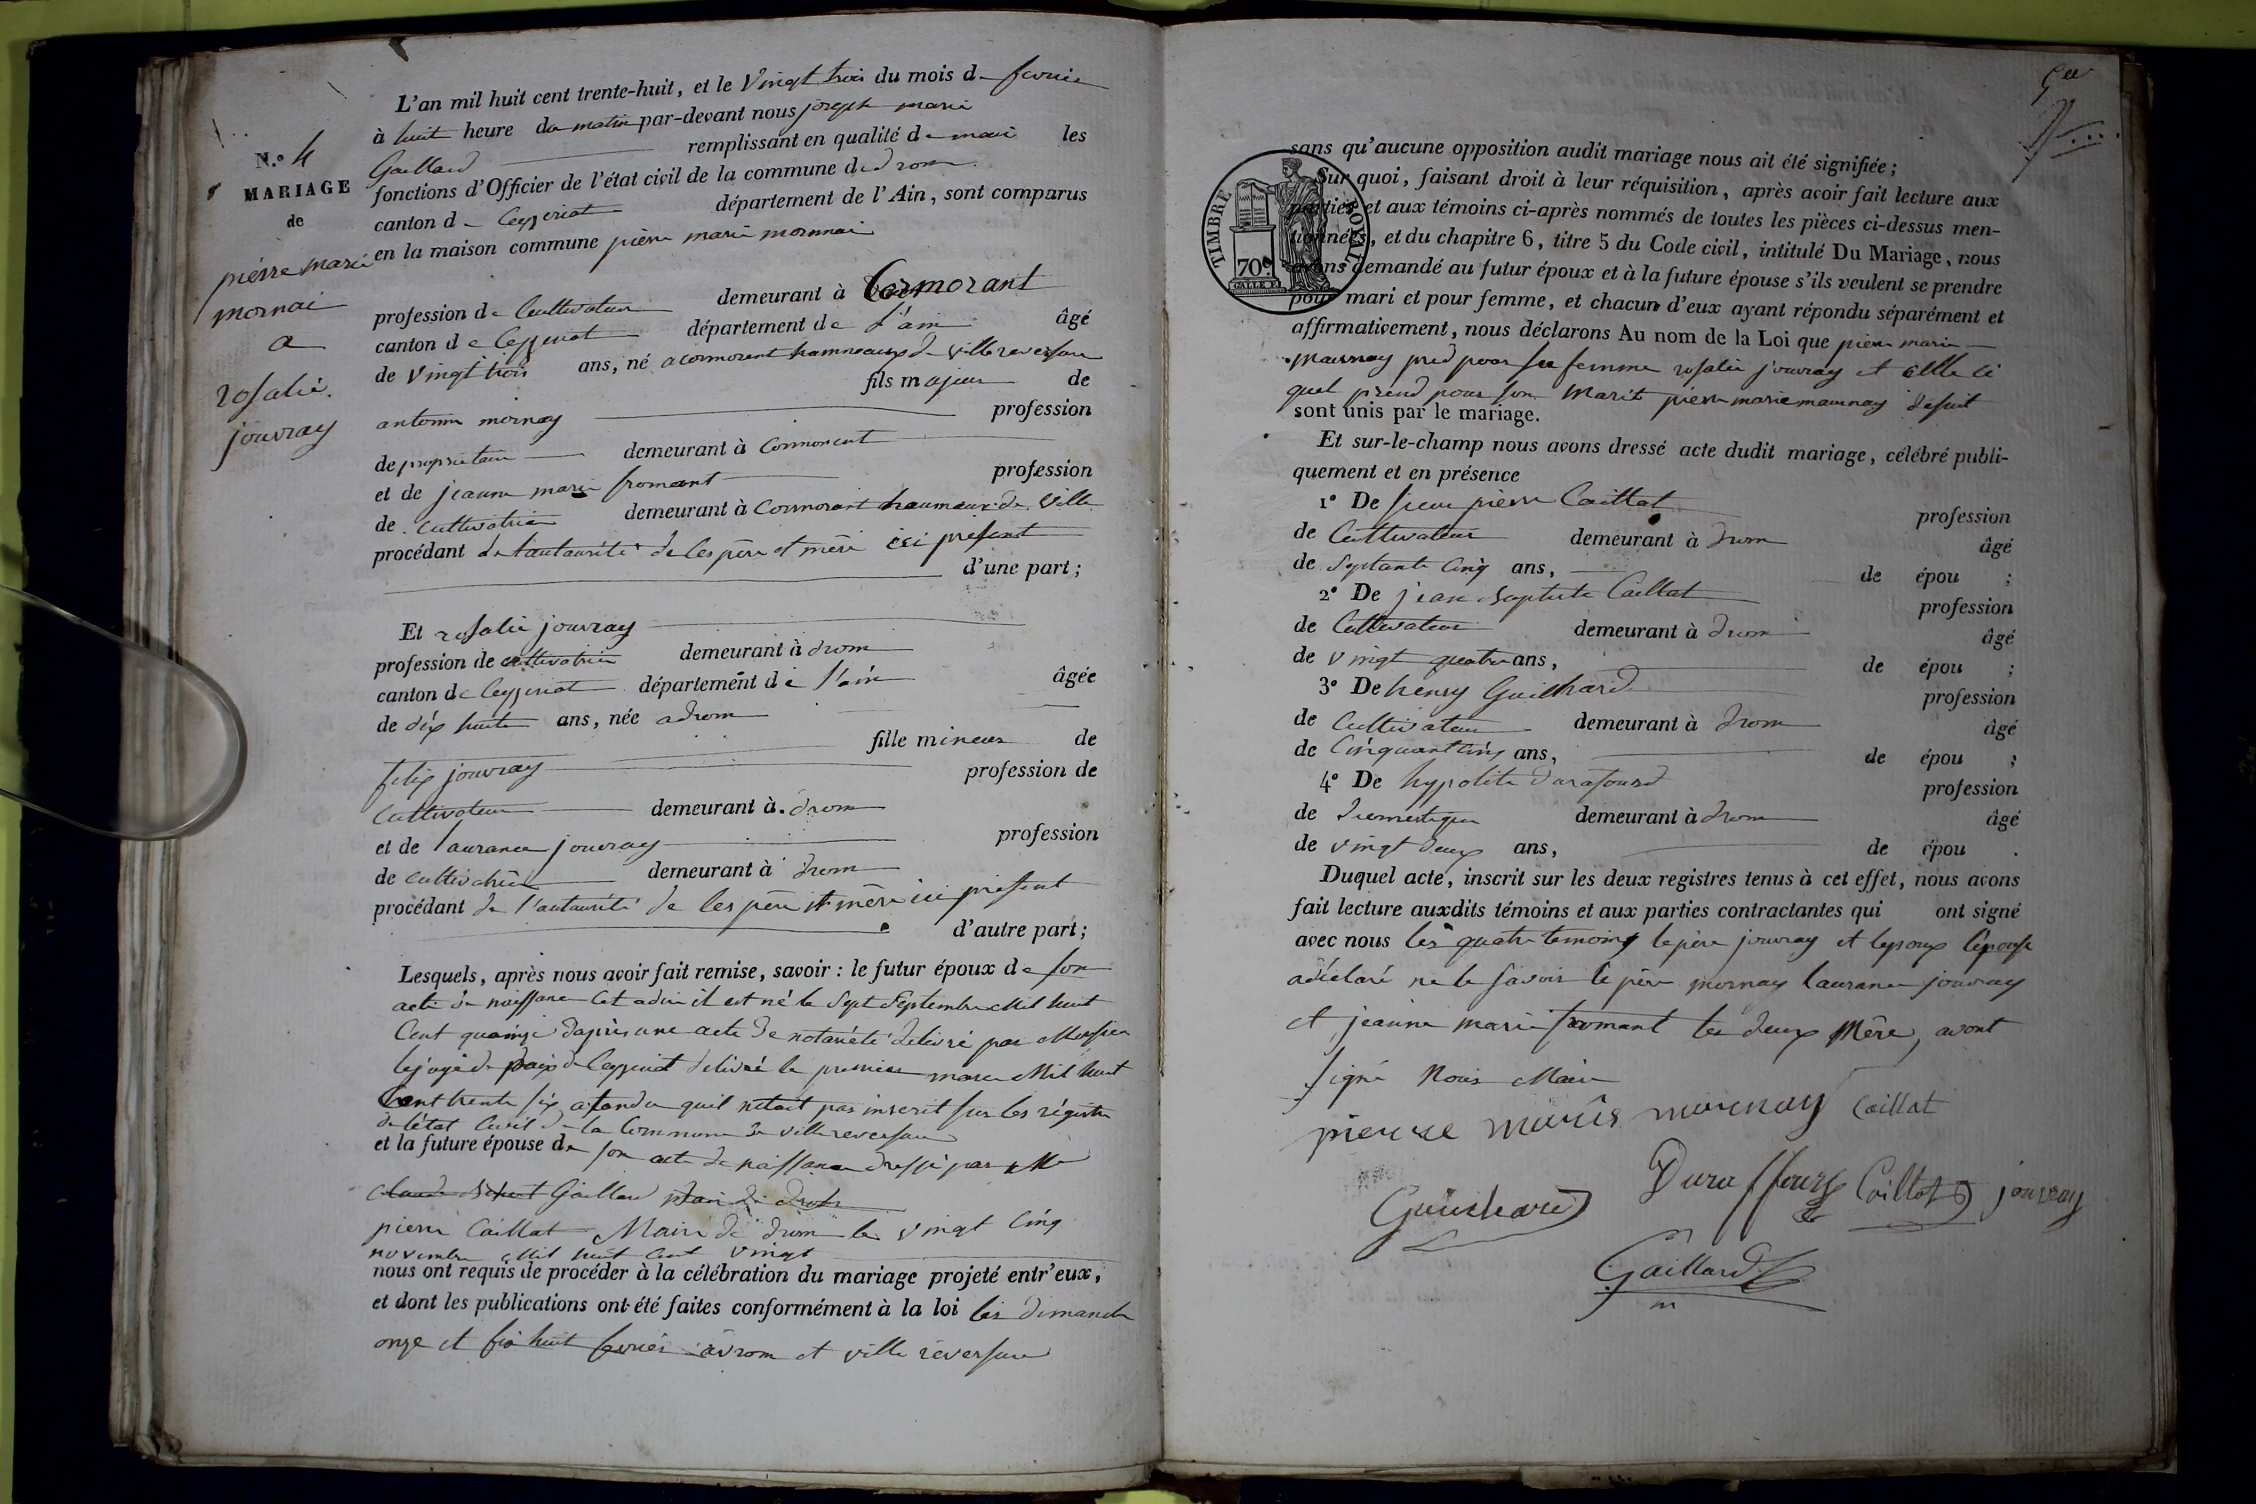 N.° 4
MARIAGE
de
pierre marie
mornai
a
rosalie.
jouvray
L'an mil huit cent trente-huit, et le Vingt trois du mois de fevrie
à huit heure du matin par-devant nous joseph marie
Gaillard remplissant en qualité de maire les
fonctions d'Officier de l'état civil de la commune de drom
canton de Ceyzeriat département de l'Ain, sont comparus
en la maison commune pierre marie mornnai
profession de Cultivateur demeurant à Cormorant
canton de Ceyzeriat département de L'ain âgé
de Vingt trois ans, né a cormorent hammeaux de villereversure
fils majeur de
antoinne mornay profession
de proprietaire demeurant à Cormorent
et de jeanne marie fromant profession
de cultivatrice demeurant à Cormorant haumeaux de Ville
procédant de l'autaurité de ces père et mère ici présent
d'une part;
Et rosalie jouvray
profession de cultivatrice demeurant à drom
canton de Ceyzeriat département de l'ain âgée
de dix huit ans, née a drom
fille mineur de
felix jouvray profession de
Cultivateur demeurant à drom
et de laurance jouvray profession
de cultivatrice demeurant à drom
procédant de l'autaurité de ces père et mère ici présent
d'autre part;
Lesquels, après nous avoir fait remise, savoir : le futur époux de son
acte de naissance Cet adire il est né le Sept Septembre Mil huit
Cent quainze daprès une acte de notariété delivré par Monsieur
le juge de paix de Ceyzeriat delivré le premier mars Mil huit
Cent trente six atandu quil netait pas inscrit sur les régistre
de l'état Civil de la Commune de villereversure
et la future épouse de son acte de naissance dressé par Mr
Gaillard
pierre Caillat Maire de drom le vingt Cinq
novembre Mil huit Cent vingt
nous ont requis de procéder à la célébration du mariage projeté entr'eux,
et dont les publications ont été faites conformément à la loi les dimanche
onze et huit fevrier a drom et ville reversure
TIMBRE ROYAL
70c
sans qu'aucune opposition audit mariage nous ait été signifiée;
Sur quoi, faisant droit à leur réquisition, après avoir fait lecture aux
parties et aux témoins ci-après nommés de toutes les pièces ci-dessus men-
tionnées, et du chapitre 6, titre 5 du Code civil, intitulé Du Mariage, nous
avons demandé au futur époux et à la future épouse s'ils veulent se prendre
pour mari et pour femme, et chacun d'eux ayant répondu séparément et
affirmativement, nous déclarons Au nom de la Loi que pierre marie
maurnay prend pour sa femme rosalie jouvray et Elle
quel prend pour son Marit pierre marie maurnay
sont unis par le mariage.
Et sur-le-champ nous avons dressé acte dudit mariage, célébré publi-
quement et en présence
1° De sieur pierre Caillat profession
de Cultivateur demeurant à drom âgé
de Septante Cinq ans, de épou ;
2° De jean Baptiste Caillat profession
de Cultivateur demeurant à drom âgé
de vingt quatre ans, de épou ;
3° De henry Guichard profession
de Cultivateur demeurant à drom âgé
de Cinquant Cinq ans, de épou ;
4° De hypolite Darafourd profession
de Domestique demeurant à drom âgé
de vingt deux ans, de épou .
Duquel acte, inscrit sur les deux registres tenus à cet effet, nous avons
fait lecture auxdits témoins et aux parties contractantes qui ont signé
avec nous les quatre temoins le père jouvray et lepoux Lépouse
a déclaré ne le Savoir le père mornay laurance jouvray
et jeanne marie fromant les deux Mère, avont
signé Nous Maire
pierre mariis mournay Caillat
Guichard Duraffourg Caillat jouvray
Gaillard
m